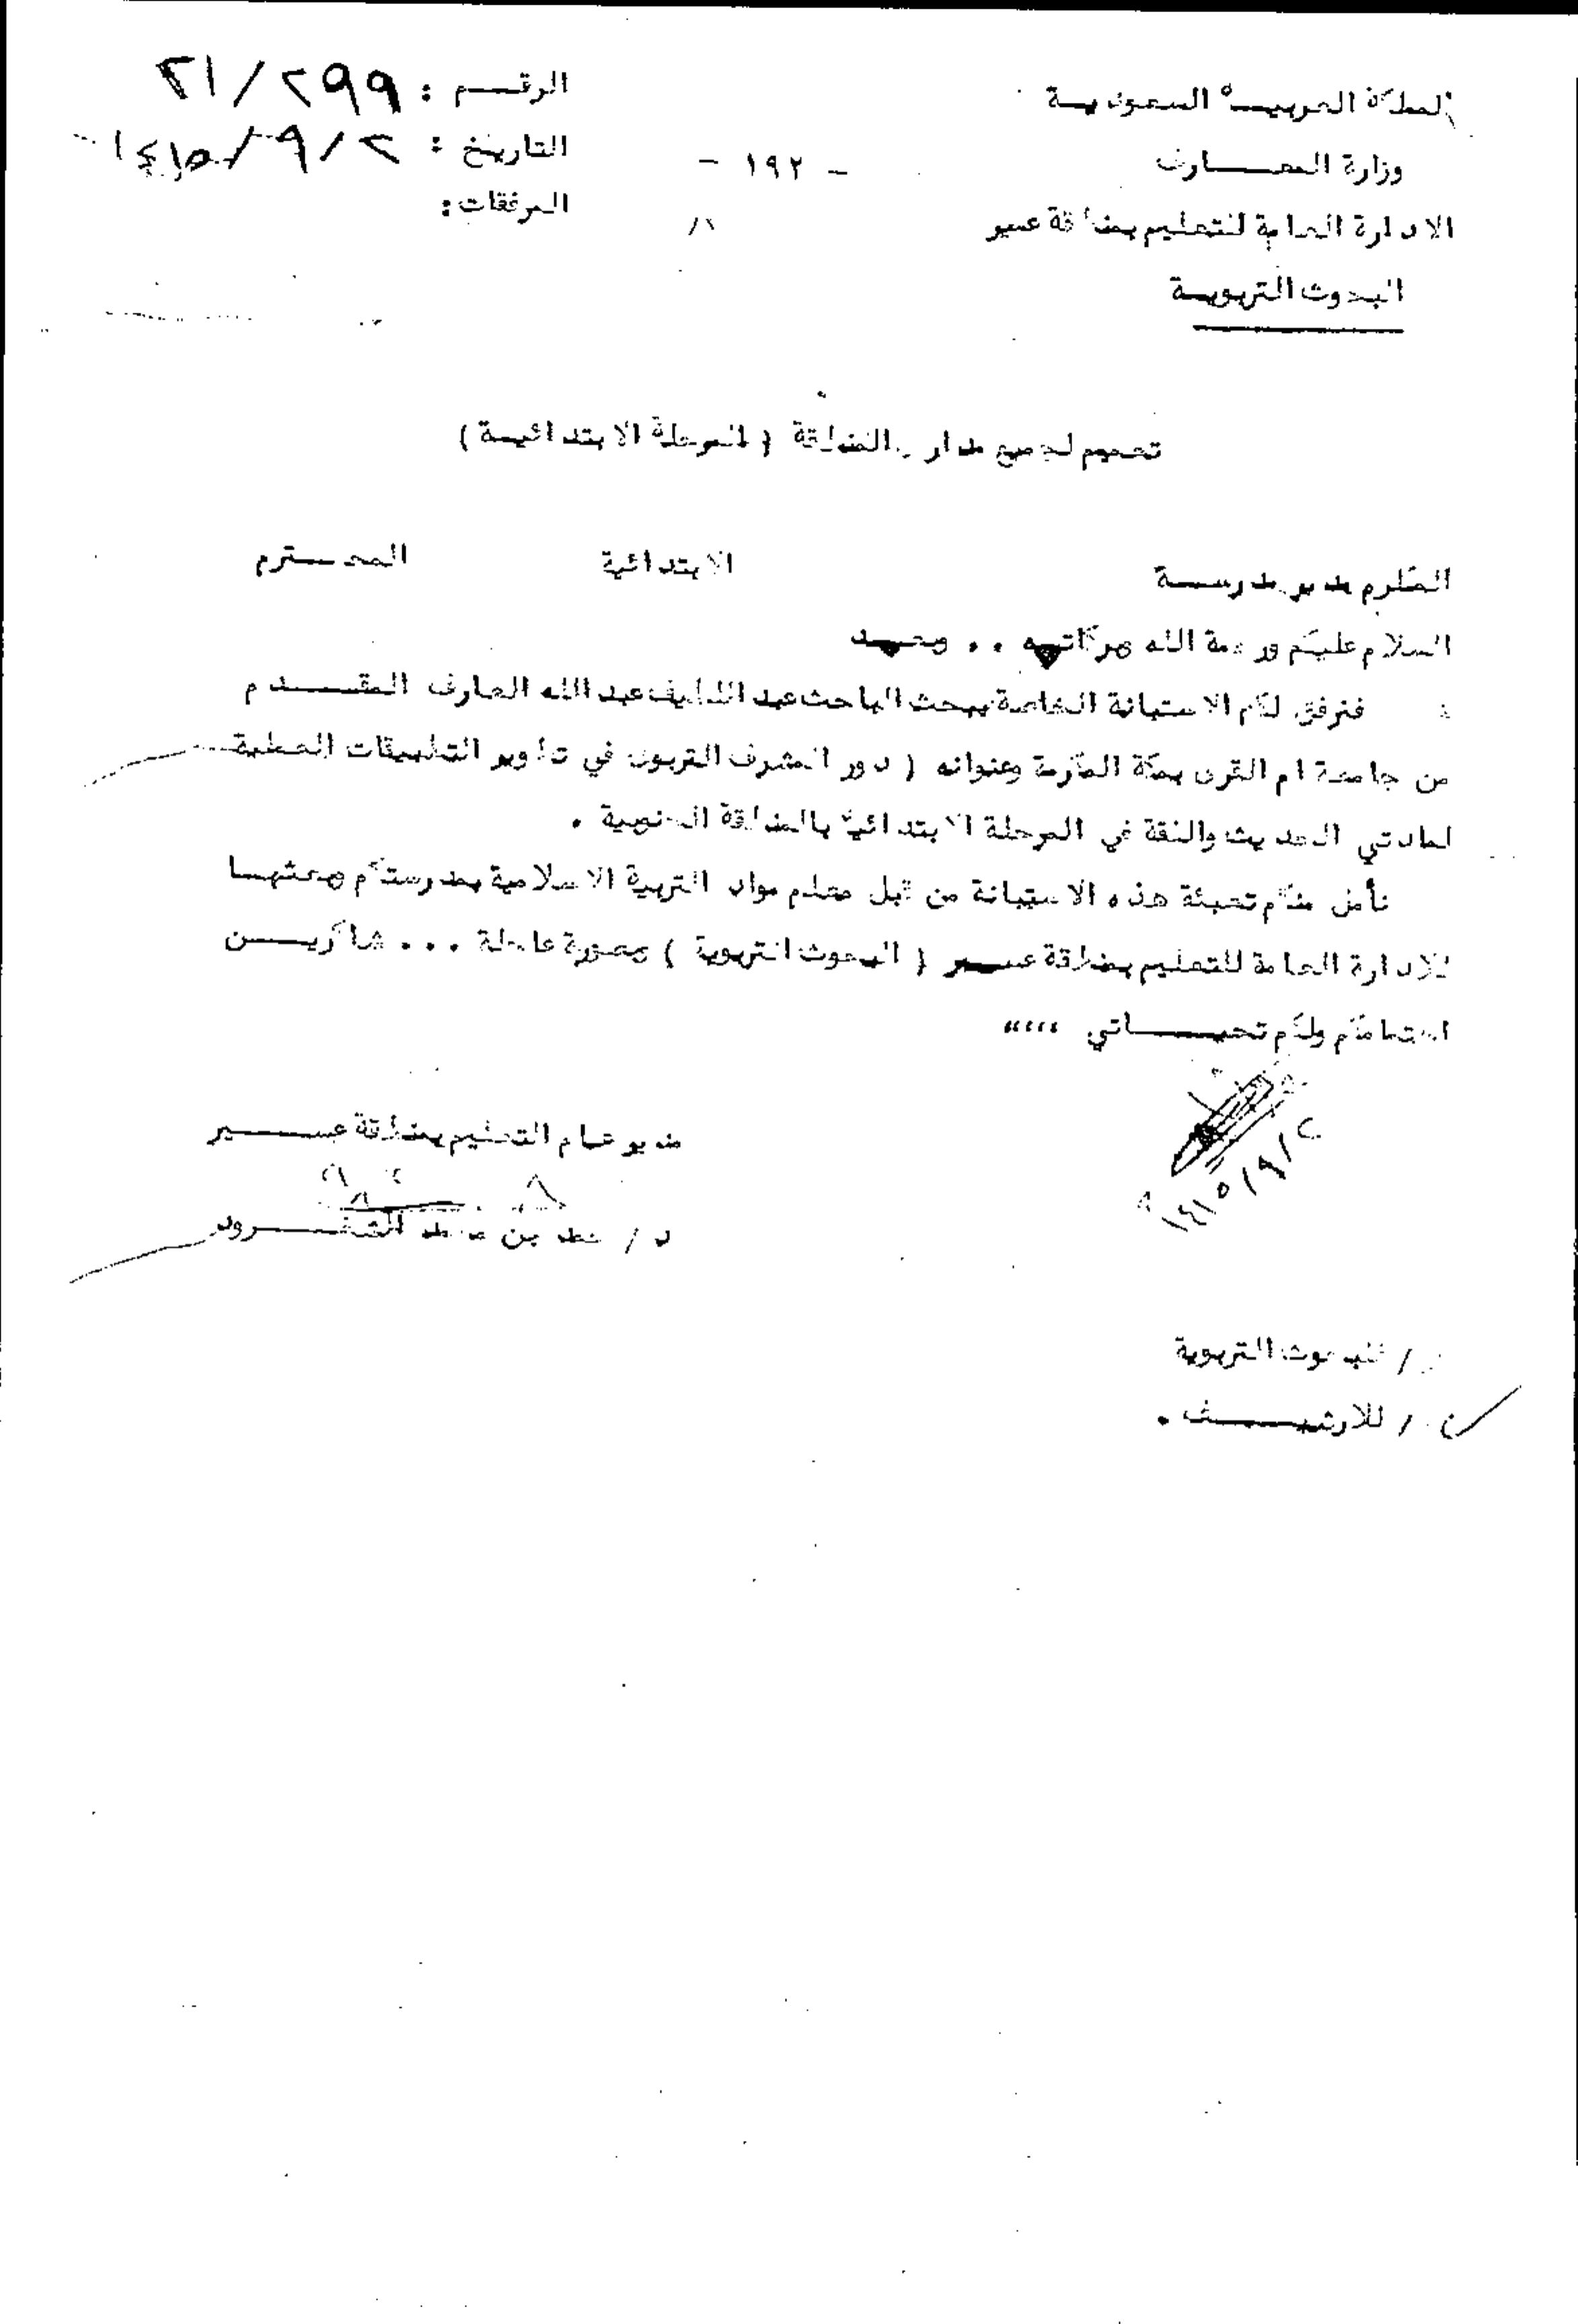 المملكة العربية السعودية
وزارة المعارف
الادارة العامة للتعليم بمنطقة عسير
البحوث التربوية
الرقم : ٢١/٢٩٩
التاريخ : ٢/٩/١٤١٥
المرفقات :
- ١٩٢ -
تعميم لجميع مدارس المنطقة ( المرحلة الابتدائية )
المكرم مدير مدرسة الابتدائية المحترم
السلام عليكم ورحمة الله وبركاته .. وبعد
فنرفق لكم الاستبانة الخاصة ببحث الباحث عبد اللطيف عبد الله العارف المقدم
من جامعة ام القرى بمكة المكرمة وعنوانه ( دور المشرف التربوى في تطوير التطبيقات العملية
لمادتي الحديث والفقة في المرحلة الابتدائية بالمنطقة الجنوبية .
نأمل منكم تعبئة هذه الاستبانة من قبل معلم مواد التربية الاسلامية بمدرستكم وبعثها
للادارة العامة للتعليم بمنطقة عسير ( البحوث التربوية ) وبصورة عاجلة ... شاكرين
اهتمامكم ولكم تحياتي ،،،،
١٤١٥/٩/٢
مدير عام التعليم بمنطقة عسير
د /
/ للبحوث التربوية
/ للارشيف .